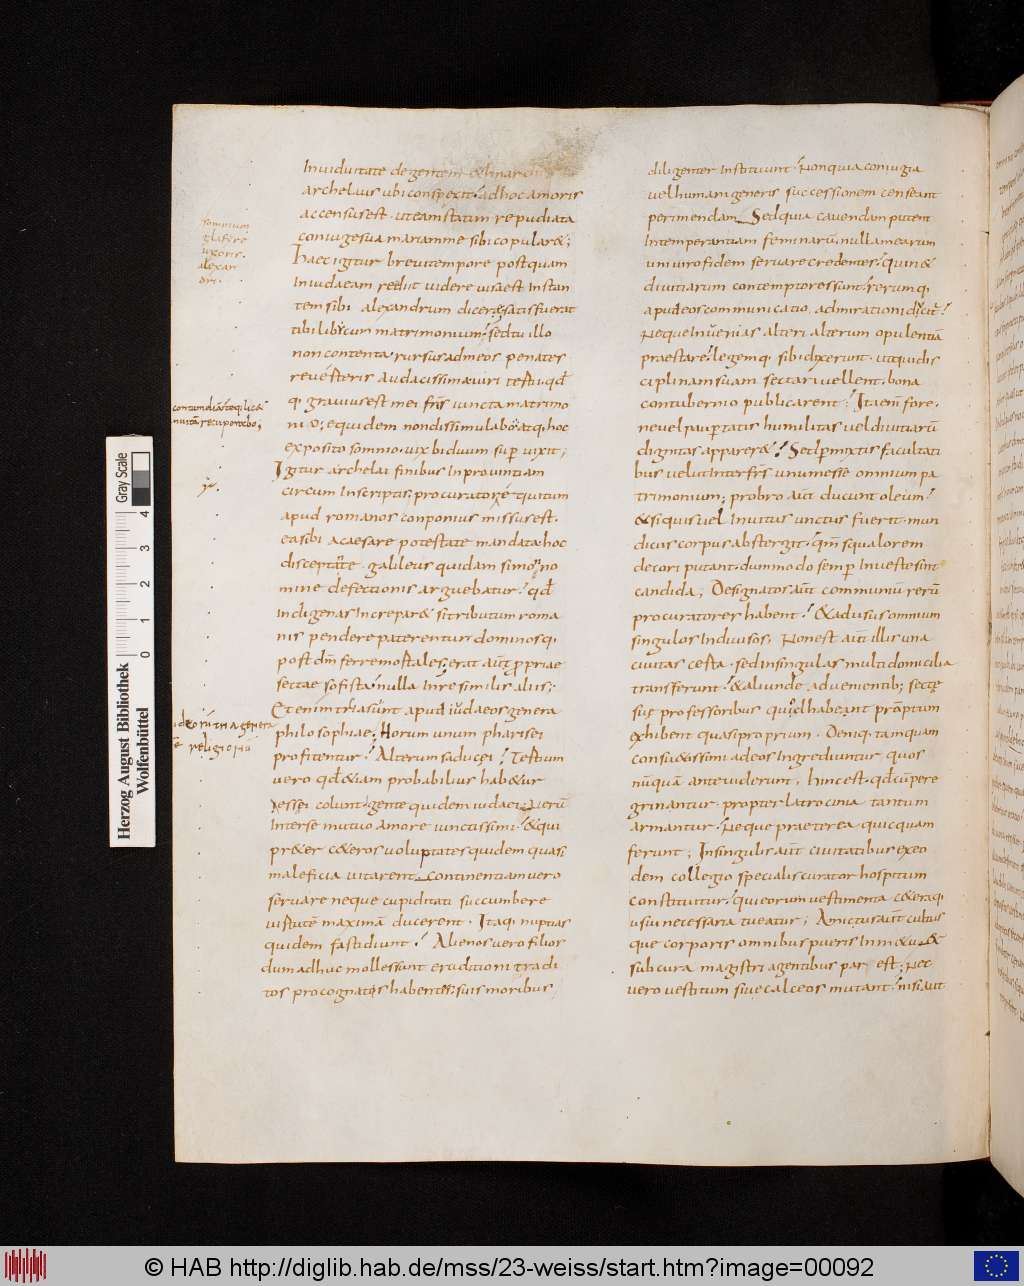 somnium
glafire
uxoris
alexan
dri.
contumeliā atq; licet
inuitā recuperabo;
iudeorū tria genera
religionū
Inuiduitate degentem & linarchi
archelaus ubi conspexit; adhoc amoris
accensus est. ut eam statim repudiata
coniuge sua mariamme sibi copular&;
haec igitur breui tempore postquam
Iniudaeam rediit uidere uisa est Instan
tem sibi alexandrum dicer&; satis fuerat
tibi libycum matrimonium; sed tu illo
non contenta rursus ad meos penates
reuerteris audacissima uiri tertii. qd̄
q; grauius est mei fr̄is iuncta matrimo
nio; equidem non dissimulabo atq; hoc
exposito somnio. uix biduum sup̄ uixit;
Igitur archelai finibus In prouintiam
circum Inscriptis. procurator equitum
apud romanos conponius missus est.
ea sibi a caesare potestate mandata. hoc
disceptante galileus quidam simon no
mine defectionis arguebatur. qd̄
Indigenas Increpar& si tributum roma
nis pendere paterentur. dominosq;
post dm̄ ferre mortales; erat aut̄ propriae
sectae sofista. nulla Inre similis aliis;
Etenim tria sunt apud iudaeos genera
philosophiae; Horum unum pharisei
profitentur. Alterum saducei. Tertium
uero qd̄ &iam probabilius hab&ur
essei colunt. gente quidem iudaei. uerū
Interse mutuo amore iunctissimi. & qui
pr&er c&eros uoluptates quidem quasi
maleficia uitarent. Continentiam uero
seruare neque cupiditati succumbere
uirtutē maximā ducerent. Itaq; nuptias
quidem fastidiunt. Alienos uero filios
dum adhuc molles sunt eruditioni tradi
tos procognatis habentes. suis moribus
diligenter Instituunt. Non quia coniugia
uel humani generis successionem censeant
perimendam. Sed quia cauendam putent
Intemperantiam feminarū. nullam earum
uni uiro fidem seruare credentes. quin &
diuitiarum contemptores sunt. rerumq;
apud eos communicatio. admirationi ducit̄.
Neque Inuenias alteri alterum opulentiā
praestare. legem q; sibi dixerunt. ut qui dis
ciplinam suam sectari uellent. bona
contubernio publicarent; Ita enī fore.
ne uel paupertatis humilitas uel diuitiarū
dignitas apparer&. Sed permixtis facultati
bus uelut Inter fr̄s unum esse omnium pa
trimonium; probro aut̄ ducunt oleum.
& si quis uel Inuitus unctus fuerit. mun
dicus corpus abstergit. qm̄ squalorem
decori putant. dummodo semp̄ In ueste sint
candida; Designatos aut̄ communiū rerū
procuratores habent. & ad usus omnium
singulos Indiuisos. Non est aut̄ illis una
ciuitas certa. sed in singulas multi domicilia
transferunt. & aliunde aduenientib; sectę
suę professoribus quod habeant prōptum
exhibent quasi proprium. Deniq; tamquam
consu&issimi ad eos Ingrediuntur quos
nūquā ante uiderunt. hinc est. qd̄ cū pere
grinantur. propter latrocinia tantum
armantur. Neque praeterea quicquam
ferunt; In singulis aut̄ ciuitatibus ex eo
dem collegio specialis curator hospitum
constituitur. qui eorum uestimenta c&eraq;
usui necessaria tueatur; Amictus aut̄ cultus
que corporis omnibus pueris In m&u &
sub cura magistri agentibus par est; Nec
uero uestitum siue calceos mutant. nisi aut
Herzog August Bibliothek
Wolfenbüttel
Gray Scale
0 1 2 3 4
© HAB http://diglib.hab.de/mss/23-weiss/start.htm?image=00092